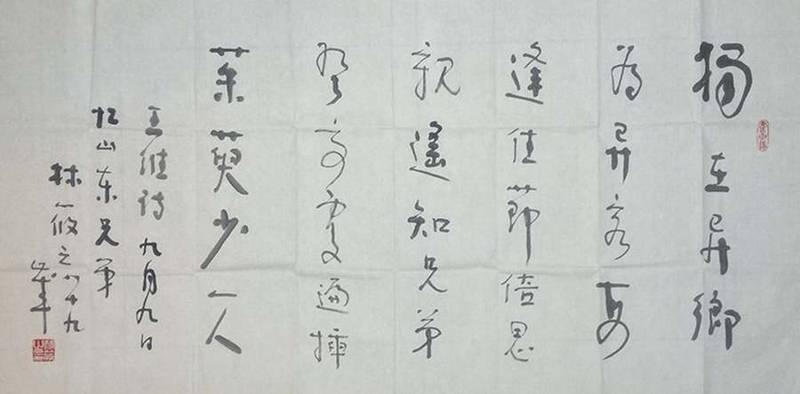 獨在异鄉
為异客每
逢佳節倍思
親遙知兄弟
登高處遍插
茱萸少一人
王維詩九月九日
忆山東兄弟
林筱之八十九